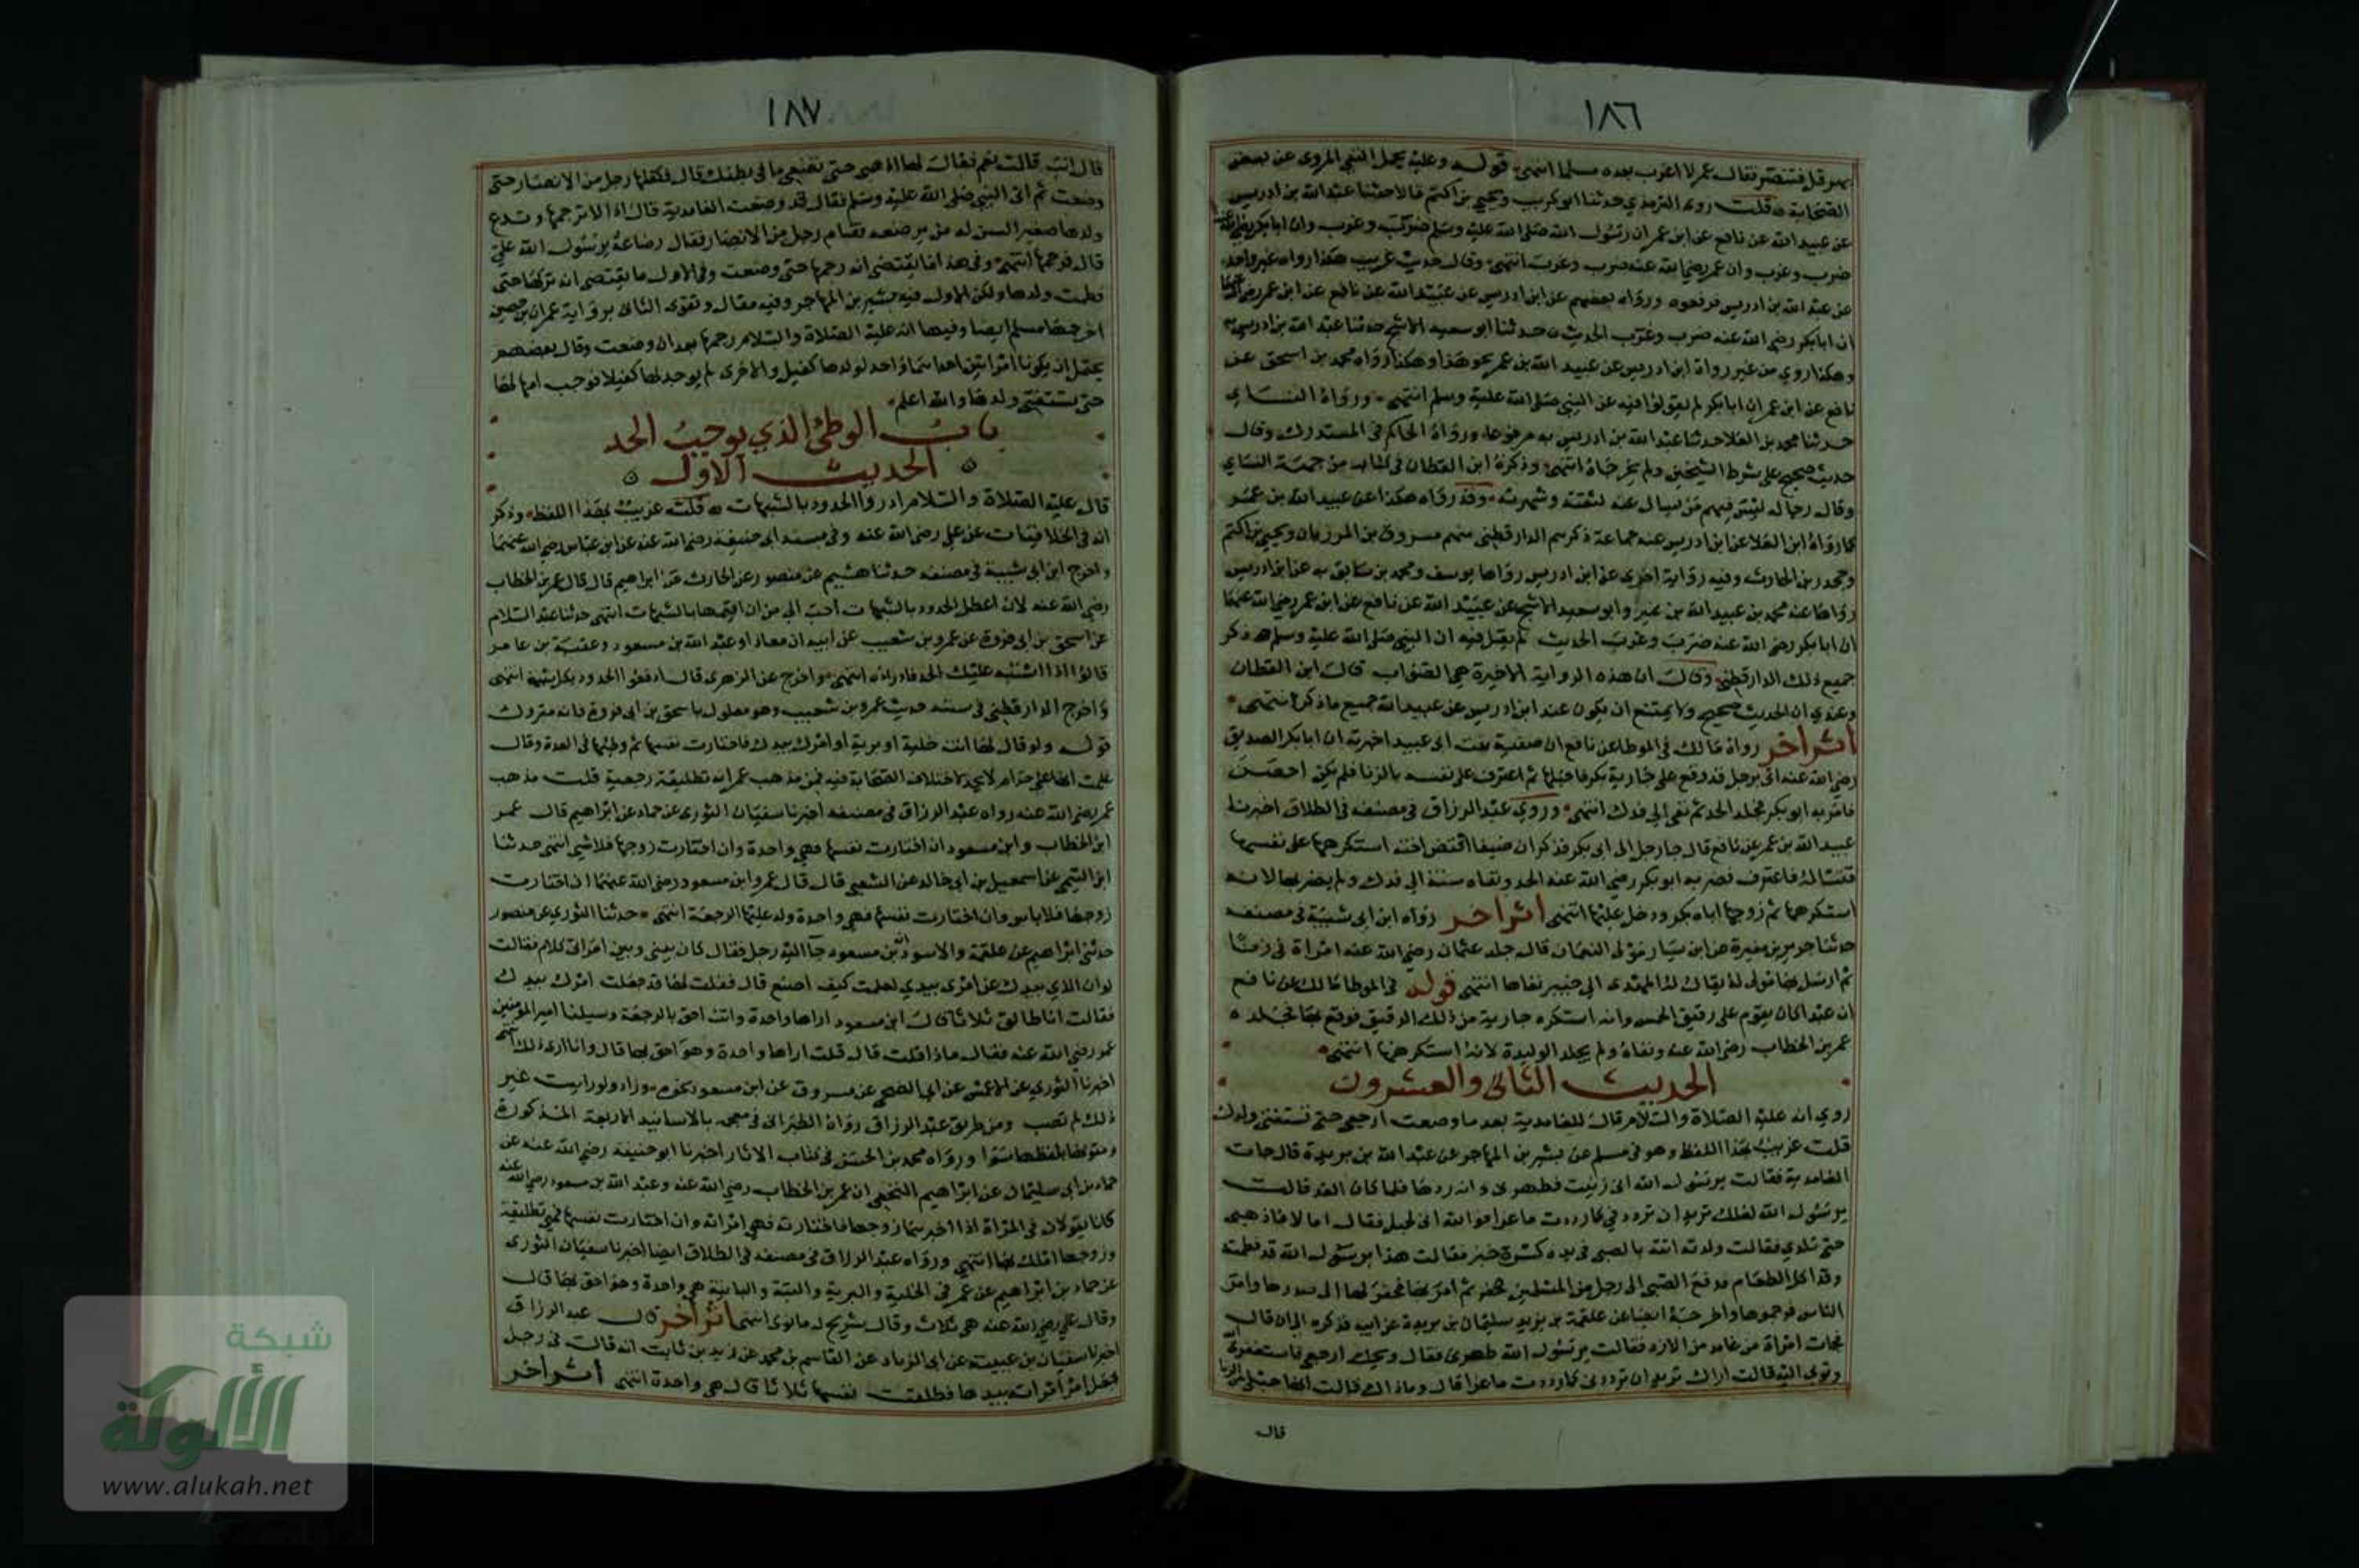 ١٨٦
بهرقل فتنصر فقال عمر لا اغرب بعده مسلما انتهى قوله وعليه يحمل النفي المروي عن بعض
الصحابة قلت روى الترمذي حدثنا ابو كريب ويحيى بن اكثم قالا حدثنا عبد الله بن ادريس
عن عبيد الله عن نافع عن ابن عمر ان رسول الله صلى الله عليه وسلم ضرب وغرب وان ابا بكر
ضرب وغرب وان عمر رضي الله عنه ضرب وغرب انتهى وقال حديث غريب هكذا رواه غير واحد
عن عبد الله بن ادريس فرفعوه ورواه بعضهم عن ابن ادريس عن عبيد الله عن نافع عن ابن عمر
ان ابا بكر رضي الله عنه ضرب وغرب الحديث حدثنا ابو سعيد الاشج حدثنا عبد الله بن ادريس به
وهكذا روي من غير رواة ابن ادريس عن عبيد الله بن عمر نحو هذا وهكذا رواه محمد بن اسحق عن
نافع عن ابن عمر ان ابا بكر لم يقولوا فيه عن النبي صلى الله عليه وسلم انتهى ورواه النساي
حدثنا محمد بن العلا حدثنا عبد الله بن ادريس به مرفوعا ورواه الحاكم في المستدرك وقال
حديث صحيح على شرط الشيخين ولم يخرجاه انتهى وذكره ابن القطان في كتابه من جهة النساي
وقال رجاله ليس فيهم من يسال عنه لثقته وشهرته وقد رواه هكذا عن عبيد الله بن عمر
كما رواه ابن العلا عن ابن ادريس عنه جماعة ذكرهم الدارقطني منهم مسروق بن المرزبان ويحيى بن اكثم
وجحدر بن الحارث وفيه رواية اخرى عن ابن ادريس رواها يوسف ومحمد بن سابق عن ابن ادريس
رواها عنه محمد بن عبيد الله بن نمير وابو سعيد الاشج عن عبيد الله عن نافع عن ابن عمر رضي الله عنهما
ان ابا بكر رضي الله عنه ضرب وغرب الحديث لم يقل فيه ان النبي صلى الله عليه وسلم ذكر
جميع ذلك الدارقطني وقال ان هذه الرواية الاخيرة هي الصواب قال ابن القطان
وعندي ان الحديث صحيح ولا يمتنع ان يكون عند ابن ادريس عن عبيد الله جميع ما ذكر انتهى
اثر اخر رواه مالك في الموطا عن نافع ان صفية بنت ابي عبيد اخبرته ان ابا بكر الصديق
رضي الله عنه اتى برجل قد وقع على جارية بكر فاحبلها ثم اعترف على نفسه بالزنا فلم يكن احصن
فامر به ابو بكر فجلد الحد ثم نفي الى فدك انتهى وروى عبد الرزاق في مصنفه في الطلاق اخبرنا
عبيد الله بن عمر عن نافع قال جا رجل الى ابي بكر فذكر ان ضيفا افتض اخته استكرهها على نفسها
فساله فاعترف فضربه ابو بكر رضي الله عنه الحد ونفاه سنة الى فدك ولم يضربها لانه
استكرهها ثم زوجها اياه بكر ودخل عليها انتهى اثر اخر رواه ابن ابي شيبة في مصنفه
حدثنا جرير عن مغيرة عن ابن يسار مولى لعثمان قال جلد عثمان رضي الله عنه امراة في زنا
ثم ارسل بها مولى له يقال له المهدى الى خيبر نفاها انتهى قوله في الموطا مالك عن نافع
ان عبدا كان يقوم على رقيق الخمس وانه استكره جارية من ذلك الرقيق فوقع بها فجلده
عمر بن الخطاب رضي الله عنه ونفاه ولم يجلد الوليدة لانه استكرهها انتهى
الحديث الثاني والعشرون
روي انه عليه الصلاة والسلام قال للغامدية بعد ما وضعت ارجعي حتى تستغني ولدك
قلت غريب بهذا اللفظ وهو في مسلم عن بشير بن المهاجر عن عبد الله بن بريدة قال جات
الغامدية فقالت يرسول الله اني زنيت فطهرني وانه ردها فلما كان الغد قالت
يرسول الله لعلك تريد ان ترددني كما رددت ماعزا فوالله اني لحبلى فقال اما لا فاذهبي
حتى تلدي فلما ولدته اتته بالصبي في يده كسرة خبز فقالت هذا يرسول الله قد فطمته
وقد اكل الطعام فدفع الصبي الى رجل من المسلمين ثم امر بها فحفر لها الى صدرها وامر
الناس فرجموها واخرجه ايضا عن علقمة بن يزيد سليمان بن بريدة عن ابيه فذكره الى ان قال
فجات امراة من غامد من الازد فقالت يرسول الله طهرني فقال ويحك ارجعي فاستغفري
وتوبي اليه قالت اراك تريد ان ترددني كما رددت ماعزا قال وما ذاك قالت انها حبلى من الزنا
قال
١٨٧
قال انت قالت نعم فقال لها اذهبي حتى تضعي ما في بطنك قال فكفلها رجل من الانصار حتى
وضعت ثم اتى النبي صلى الله عليه وسلم فقال قد وضعت الغامدية قال اذا لا نرجمها وندع
ولدها صغيرا ليس له من يرضعه فقام رجل من الانصار فقال رضاعه يرسول الله علي
قال فرجمها انتهى وفي هذا ما يقتضي انه رجمها حتى وضعت وفي الاول ما يقتضي انه تركها حتى
فطمت ولدها ولكن الاول فيه بشير بن المهاجر وفيه مقال وتقوى الثاني برواية عمران بن حصين
اخرجها مسلم ايضا وفيها انه عليه الصلاة والسلام رجمها بعد ان وضعت وقال بعضهم
يحتمل ان يكونا امراتين احداهما واحد لولدها كفيل والاخرى لم يوجد لها كفيل فوجب امهالها
حتى يستغني ولدها والله اعلم
باب الوطئ الذي يوجب الحد
الحديث الاول
قال عليه الصلاة والسلام ادروا الحدود بالشبهات قلت غريب بهذا اللفظ وذكر
انه في الخلافيات عن علي رضي الله عنه وفي مسند ابي حنيفة رضي الله عنه عن ابن عباس رضي الله عنهما
واخرج ابن ابي شيبة في مصنفه حدثنا هشيم عن منصور عن الحارث عن ابراهيم قال قال عمر بن الخطاب
رضي الله عنه لان اعطل الحدود بالشبهات احب الي من ان اقيمها بالشبهات انتهى حدثنا عبد السلام
عن اسحق بن ابي فروة عن عمرو بن شعيب عن ابيه ان معاذا وعبد الله بن مسعود وعقبة بن عامر
قالوا اذا اشتبه عليك الحد فادراه انتهى واخرج عن الزهري قال ادفعوا الحدود بكل شبهة انتهى
واخرج الدارقطني في سننه حديث عمرو بن شعيب وهو معلول باسحق بن ابي فروة فانه متروك
قوله ولو قال لها انت خلية او برية او امرك بيدك فاختارت نفسها ثم وطئها في العدة وقال
علمت انها علي حرام لا يحد لاختلاف الصحابة فيه فمن مذهب عمر انه تطليقة رجعية قلت مذهب
عمر رضي الله عنه رواه عبد الرزاق في مصنفه اخبرنا سفيان الثوري عن حماد عن ابراهيم قال عمر
ابن الخطاب وابن مسعود ان اختارت نفسها فهي واحدة وان اختارت زوجها فلا شي انتهى حدثنا
ابن التيمي عن اسمعيل بن ابي خالد عن الشعبي قال قال عمر وابن مسعود رضي الله عنهما ان اختارت
زوجها فلا باس وان اختارت نفسها فهي واحدة وله عليها الرجعة انتهى حدثنا الثوري عن منصور
حدثني ابراهيم عن علقمة والاسود ان ابن مسعود جا اليه رجل فقال كان بيني وبين امراتي كلام فقالت
لو ان الذي بيدك من امري بيدي لعلمت كيف اصنع قال فقلت لها قد جعلت امرك بيدك
فقالت انا طالق ثلاثا قال ابن مسعود اراها واحدة وانت احق بالرجعة وسيلنا امير المومنين
عمر رضي الله عنه فقال ماذا قلت قال قلت اراها واحدة وهو احق بها قال وانا ارى ذلك انتهى
اخبرنا الثوري عن الاعمش عن ابي الضحى عن مسروق عن ابن مسعود نحوه وزاد ولو رايت غير
ذلك لم تصب ومن طريق عبد الرزاق رواه الطبراني في معجمه بالاسانيد الاربعة المذكورة
ومتونها بلفظها سوا ورواه محمد بن الحسن في كتاب الاثار اخبرنا ابو حنيفة رضي الله عنه عن
حماد بن ابي سليمان عن ابراهيم النخعي ان عمر بن الخطاب رضي الله عنه وعبد الله بن مسعود رضي الله عنه
كانا يقولان في المراة اذا خيرها زوجها فاختارته فهي امراته وان اختارت نفسها فهي تطليقة
وزوجها املك بها انتهى ورواه عبد الرزاق في مصنفه في الطلاق ايضا اخبرنا سفيان الثوري
عن حماد بن ابراهيم عن عمر في الخلية والبرية والبتة والباينة هي واحدة وهو احق بها قال
وقال علي رضي الله عنه هي ثلاث وقال شريح له ما نوى انتهى اثر اخر قال عبد الرزاق
اخبرنا سفيان بن عيينة عن ابي الزناد عن القاسم بن محمد عن زيد بن ثابت انه قال في رجل
جعل امر امراته بيدها فطلقت نفسها ثلاثا قال هي واحدة انتهى اثر اخر
شبكة
الألوكة
www.alukah.net